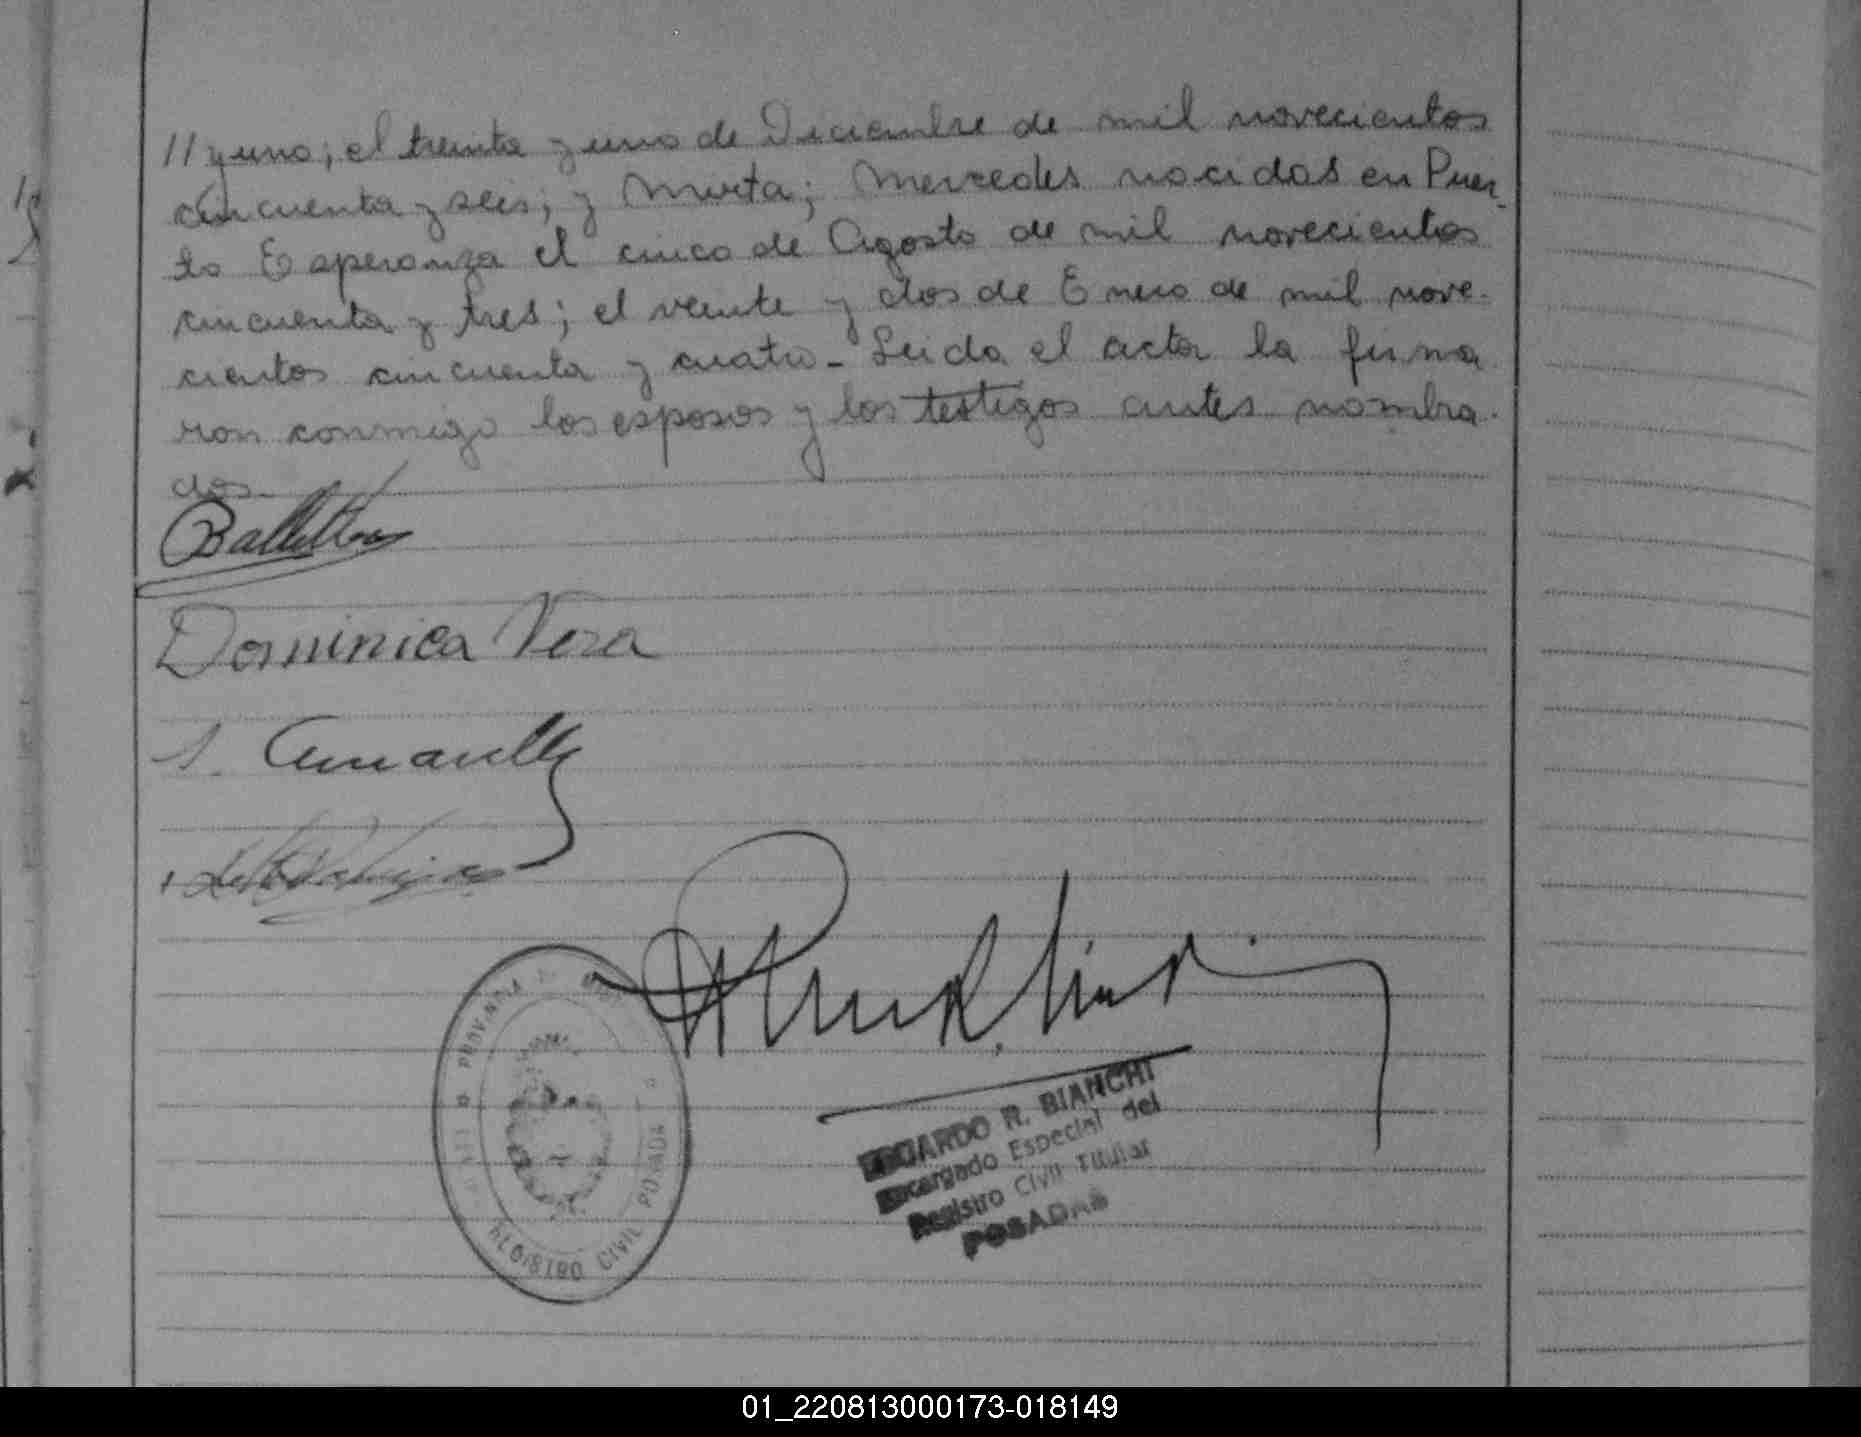 // y uno; el treinta y uno de Diciembre de mil novecientos
cincuenta y seis; y Mirta; Mercedes nacidas en Puer-
to Esperanza el cinco de Agosto de mil novecientos
cincuenta y tres; el veinte y dos de Enero de mil nove-
cientos cincuenta y cuatro - Leida el acta la firma
ron conmigo los esposos y los testigos antes nombra-
dos.-
Dominica Vera
PROVINCIA
REGISTRO CIVIL POSADAS
R. BIANCHI
Encargado Especial del
Registro Civil Titular
POSADAS
01_220813000173-018149